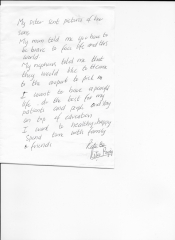 My sister sent picture of her
sons
My mum told me you have to
be brave to face life and this
world
My nephews told me that
they would like to come
to the airport to pick me
I want to have a good
life. do the best for my
patients and people and stay
on top of education
I want to healthy, happy
Spend time with family
& friends